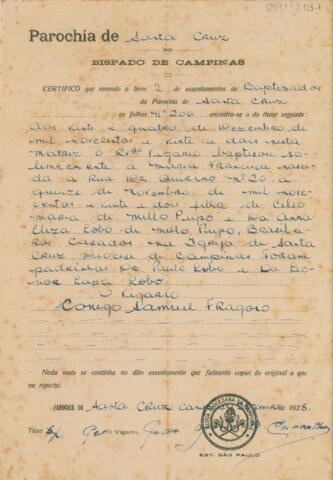 Parochia de Santa Cruz
NO
BISPADO DE CAMPINAS
CERTIFICO que revendo o livro 2 de assentamentos de Baptisados
da Parochia de Santa Cruz
as folhas nº 206 encontra-se o do theor seguinte:
Aos vinte e quatro de Dezembro de
mil novecentos e vinte e dois nesta
matriz o Rvº Vigario baptisou so-
lennemente a Maria Francisca nasci-
da a Rua Dr Quirino nº 20 a
quinze de Novembro de mil nove-
centos e vinte e dois filha de Celso
Maria de Mello Pupo e Da Anna
Eliza Lobo de Mello Pupo, Brasilei-
ros Casados na Igreja de Santa
Cruz Diocese de Campinas Foram
padrinhos Dr Paulo Lobo e Da Leo-
nor Lapa Lobo.
O Vigario
Conego Samuel Fragoso
Nada mais se continha no dito assentamento que fielmente copiei do original a que
me reporto.
PAROCHIA DE Santa Cruz de 1928.
Taxa O Vigario,
EST. SÃO PAULO